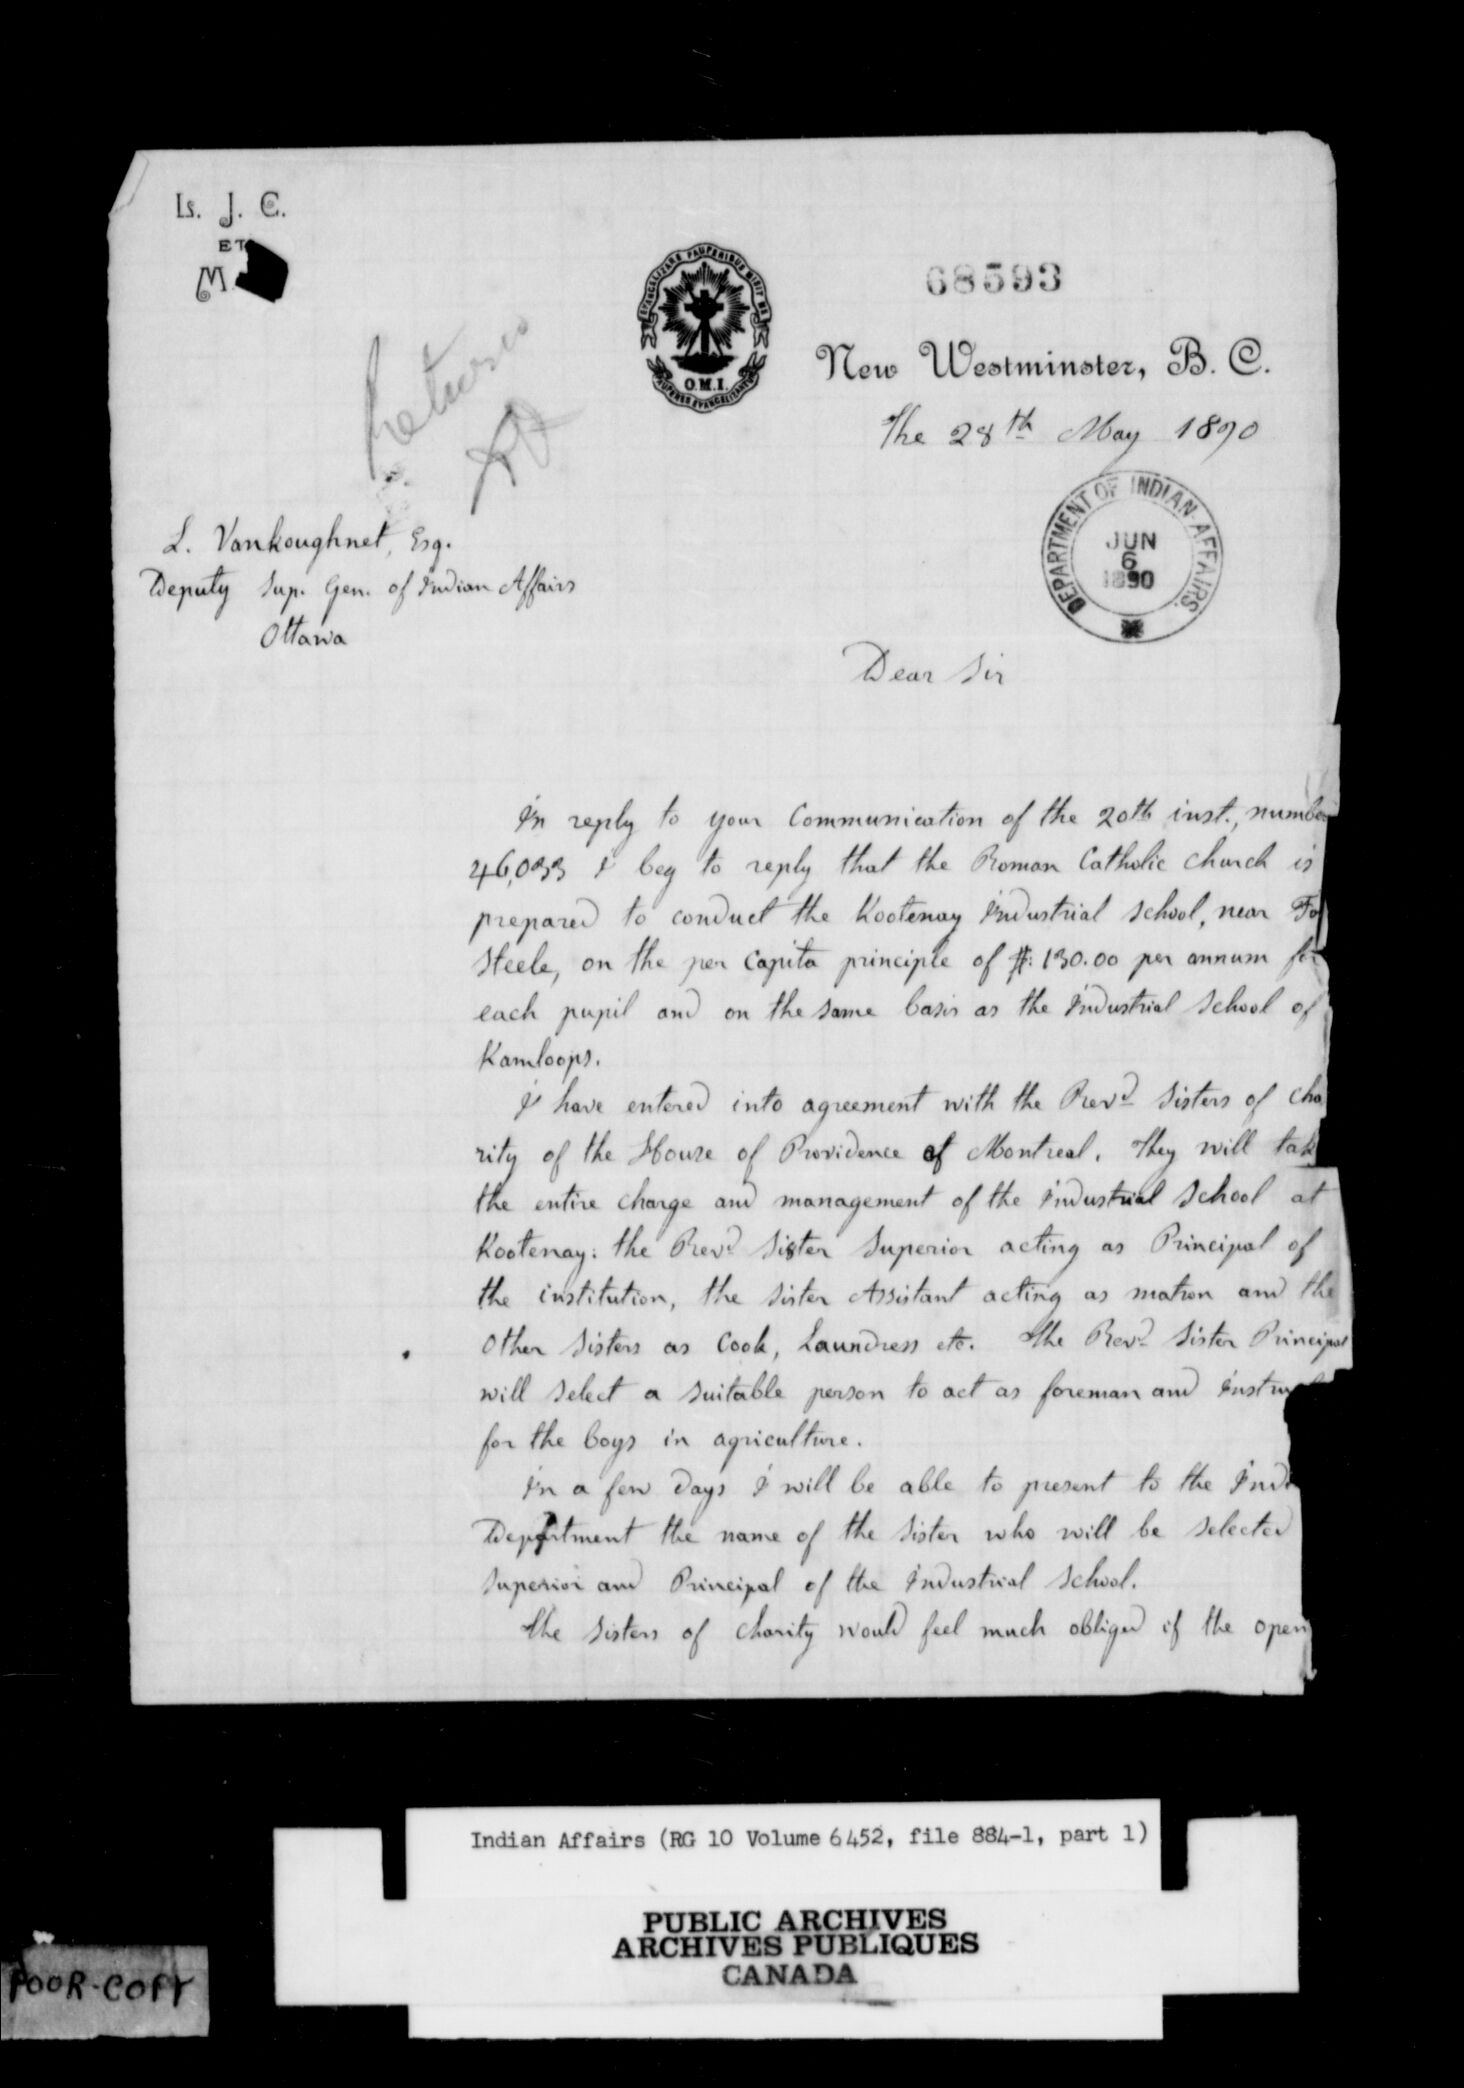 Ls. J. C.
ET
M
EVANGELIZARE PAUPERIBUS MISIT ME
O.M.I.
PAUPERES EVANGELIZANTUR
68593
New Westminster, B. C.
The 28th May 1890
Return
DEPARTMENT OF INDIAN AFFAIRS.
JUN
6
1890
L. Vankoughnet, Esq.
Deputy Sup. Gen. of Indian Affairs
Ottawa
Dear Sir
In reply to your Communication of the 20th inst., number
46,033 I beg to reply that the Roman Catholic church is
prepared to conduct the Kootenay Industrial School, near Fo
Steele, on the per capita principle of $: 130.00 per annum for
each pupil and on the same basis as the Industrial School of
Kamloops.
I have entered into agreement with the Revd Sisters of Cha
rity of the House of Providence of Montreal. They will tak
the entire charge and management of the Industrial School at
Kootenay: the Revd Sister Superior acting as Principal of
the institution, the Sister Assistant acting as matron and the
Other Sisters as Cook, Laundress etc. The Revd Sister Principal
will select a suitable person to act as foreman and Instru
for the boys in agriculture.
In a few days I will be able to present to the Indi
Department the name of the Sister who will be selected
Superior and Principal of the Industrial School.
The Sisters of Charity would feel much obliged if the open
Indian Affairs (RG 10 Volume 6452, file 884-1, part 1)
PUBLIC ARCHIVES
ARCHIVES PUBLIQUES
CANADA
POOR-COPY